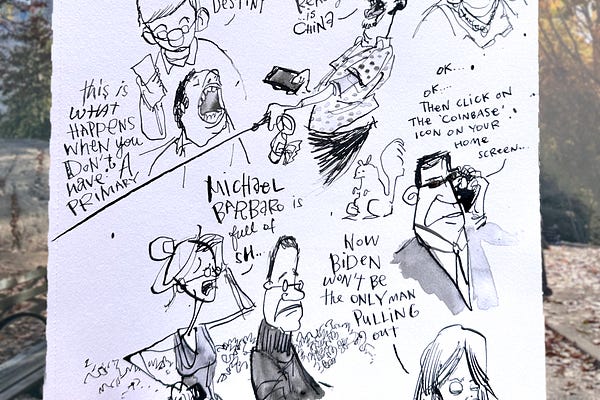 DESTINY
REALLY
..is
CHINA
this is
WHAT
HAPPENS
WHEN YOU
DON'T
HAVE A
PRIMARY
OK....
OK....
THEN CLICK ON
THE 'COINBASE'
ICON ON YOUR
HOME
SCREEN...
MICHAEL
BARBARO is
full of
SH...
NOW
BIDEN
WON'T BE
the ONLY MAN
PULLING
out